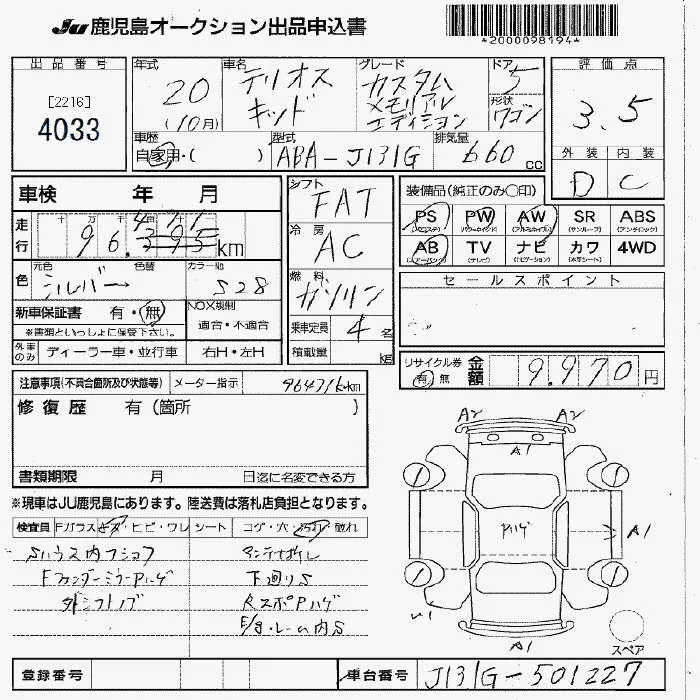 JU 鹿児島オークション出品申込書
*2000098194*
出品番号
[2216]
4033
年式
20
(10月)
車名
テリオス
キッド
グレード
カスタム
メモリアル
エディション
ドア
5
形状
ワゴン
評価点
3.5
外装 内装
D C
車歴
自家用・( )
型式
ABA-J131G
排気量
660 CC
車検 年 月
走行
十 万 千
96.395 km
471
シフト
FAT
冷房
AC
燃料
ガソリン
乗車定員 4 名
積載量 KG
色
元色 色替
シルバー→
カラーNo
S28
新車保証書 有・無
※書類といっしょに保管下さい。
NOX規制
適合・不適合
外車のみ
ディーラー車・並行車 右H・左H
装備品(純正のみ○印)
PS PW AW SR ABS
(パワステ) (パワーウインド) (アルミホイル) (サンルーフ) (アンチロック)
AB TV ナビ カワ 4WD
(エアーバック) (テレビ) (ナビゲーション) (本革シート)
セールスポイント
リサイクル券
有 無
金額
9,970 円
注意事項(不具合箇所及び状態等) メーター指示 96471km
修復歴 有(箇所 )
書類期限 月 日迄に名変できる方
※現車はJU鹿児島にあります。陸送費は落札店負担となります。
検査員 Fガラス キズ・ヒビ・ワレ シート コゲ・穴・汚れ・破れ
Fフェンダーミラー Pハゲ
外シフトノブ
下廻りS
RスポPハゲ
E/g・ルーム内S
A2 A2
A1
Pハゲ
A1
A1
スペア
登録番号
車台番号 J131G-501227